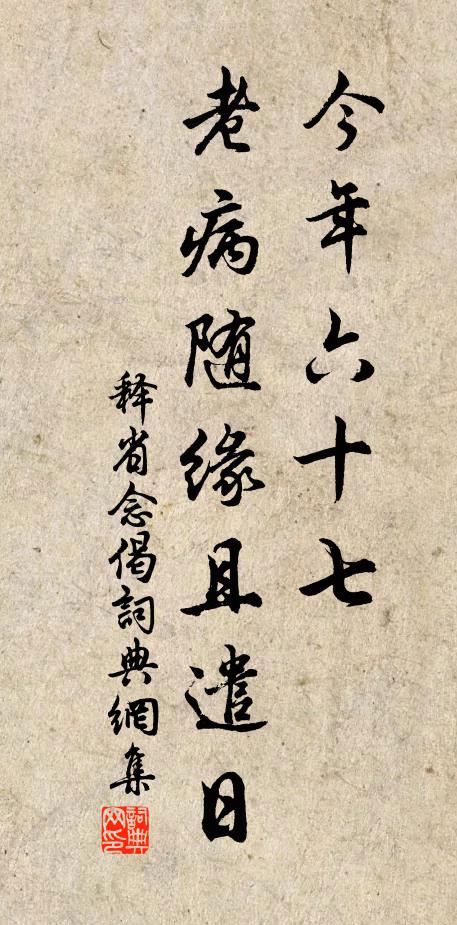 今年六十七
老病随缘且遣日
释省念偈詞典網集
詞典網印